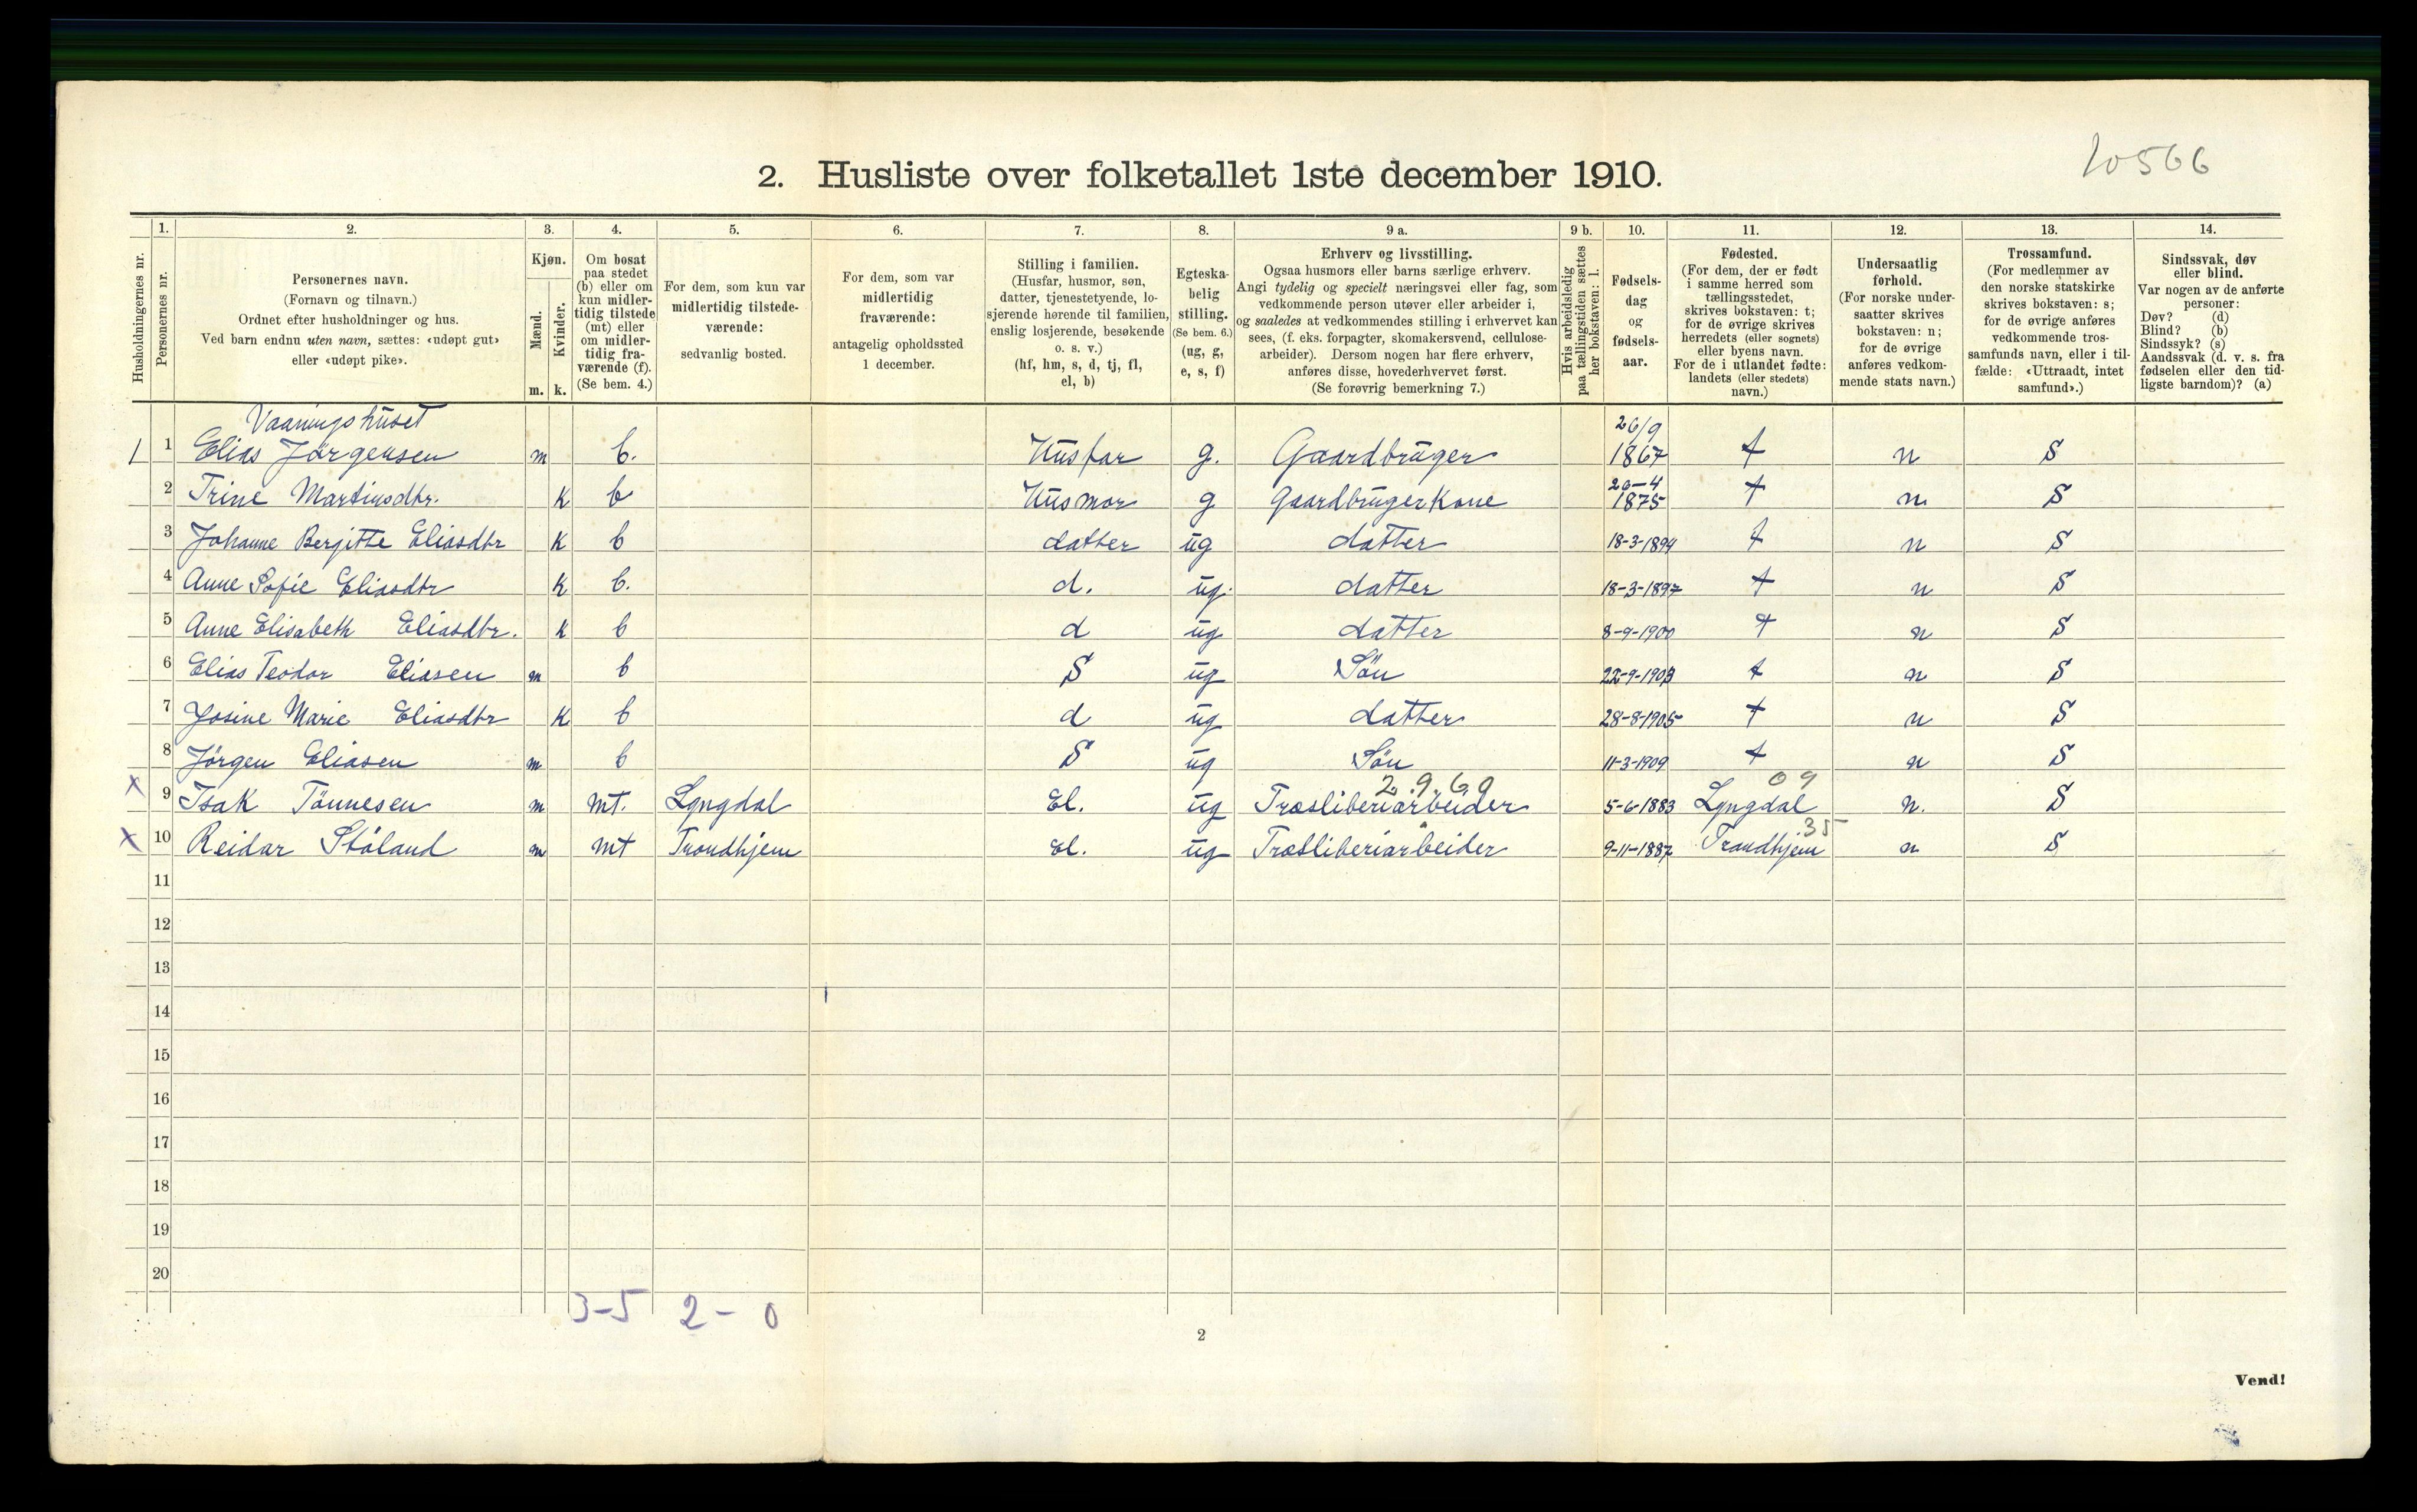 10566
2. Husliste over folketallet 1ste december 1910.
Husholdningernes nr.
1. Personernes nr.
2. Personernes navn.
(Fornavn og tilnavn.)
Ordnet efter husholdninger og hus.
Ved barn endnu uten navn, sættes: «udøpt gut»
eller «udøpt pike».
3. Kjøn.
Mænd. m.
Kvinder. k.
4. Om bosat
paa stedet
(b) eller om
kun midler-
tidig tilstede
(mt) eller
om midler-
tidig fra-
værende (f).
(Se bem. 4.)
5. For dem, som kun var
midlertidig tilstede-
værende:
sedvanlig bosted.
6. For dem, som var
midlertidig
fraværende:
antagelig opholdssted
1 december.
7. Stilling i familien.
(Husfar, husmor, søn,
datter, tjenestetyende, lo-
sjerende hørende til familien,
enslig losjerende, besøkende
o. s. v.)
(hf, hm, s, d, tj, fl,
el, b)
8. Egteska-
belig
stilling.
(Se bem. 6.)
(ug, g,
e, s, f)
9 a. Erhverv og livsstilling.
Ogsaa husmors eller barns særlige erhverv.
Angi tydelig og specielt næringsvei eller fag, som
vedkommende person utøver eller arbeider i,
og saaledes at vedkommendes stilling i erhvervet kan
sees, (f. eks. forpagter, skomakersvend, cellulose-
arbeider). Dersom nogen har flere erhverv,
anføres disse, hovederhvervet først.
(Se forøvrig bemerkning 7.)
9 b. Hvis arbeidsledig
paa tællingstiden sættes
her bokstaven: l.
10. Fødsels-
dag
og
fødsels-
aar.
11. Fødested.
(For dem, der er født
i samme herred som
tællingsstedet,
skrives bokstaven: t;
for de øvrige skrives
herredets (eller sognets)
eller byens navn.
For de i utlandet fødte:
landets (eller stedets)
navn.)
12. Undersaatlig
forhold.
(For norske under-
saatter skrives
bokstaven: n;
for de øvrige
anføres vedkom-
mende stats navn.)
13. Trossamfund.
(For medlemmer av
den norske statskirke
skrives bokstaven: s;
for de øvrige anføres
vedkommende tros-
samfunds navn, eller i til-
fælde: «Uttraadt, intet
samfund».)
14. Sindssvak, døv
eller blind.
Var nogen av de anførte
personer:
Døv? (d)
Blind? (b)
Sindssyk? (s)
Aandssvak (d. v. s. fra
fødselen eller den tid-
ligste barndom)? (a)
Vaaningshuset
1 1 Elias Jørgensen m b. Husfar g. Gaardbruger 26/9 1867 t n S
2 Trine Martinsdtr. K b Husmor g GaardbrugerKone 20-4 1875 t n S
3 Johanne Bergitte Eliasdtr K b datter ug datter 18-3-1894 t n S
4 Anne Sofie Eliasdtr K b. d. ug. datter 18-3-1897 t n S
5 Anne Elisabeth Eliasdtr. K b d ug datter 8-9-1900 t n S
6 Elias Teodor Eliasen m b S ug Søn 22-9-1903 t n S
7 Josine Marie Eliasdtr K b d ug datter 28-8-1905 t n S
8 Jørgen Eliasen m b S ug Søn 11-3-1909 t n S
2.9.60 09
x 9 Isak Tönnesen m mt. Lyngdal El. ug Træsliberiarbeider 5-6-1883 Lyngdal n. S
35
x 10 Reidar Stöland m mt Trondhjem el. ug Træsliberiarbeider 9-11-1887 Trondhjem n S
11
12
13
14
15
16
17
18
19
20
3-5 2-0
2
Vend!